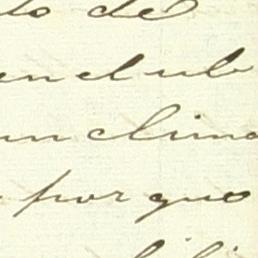 to de
en el ulti
un clima
por que